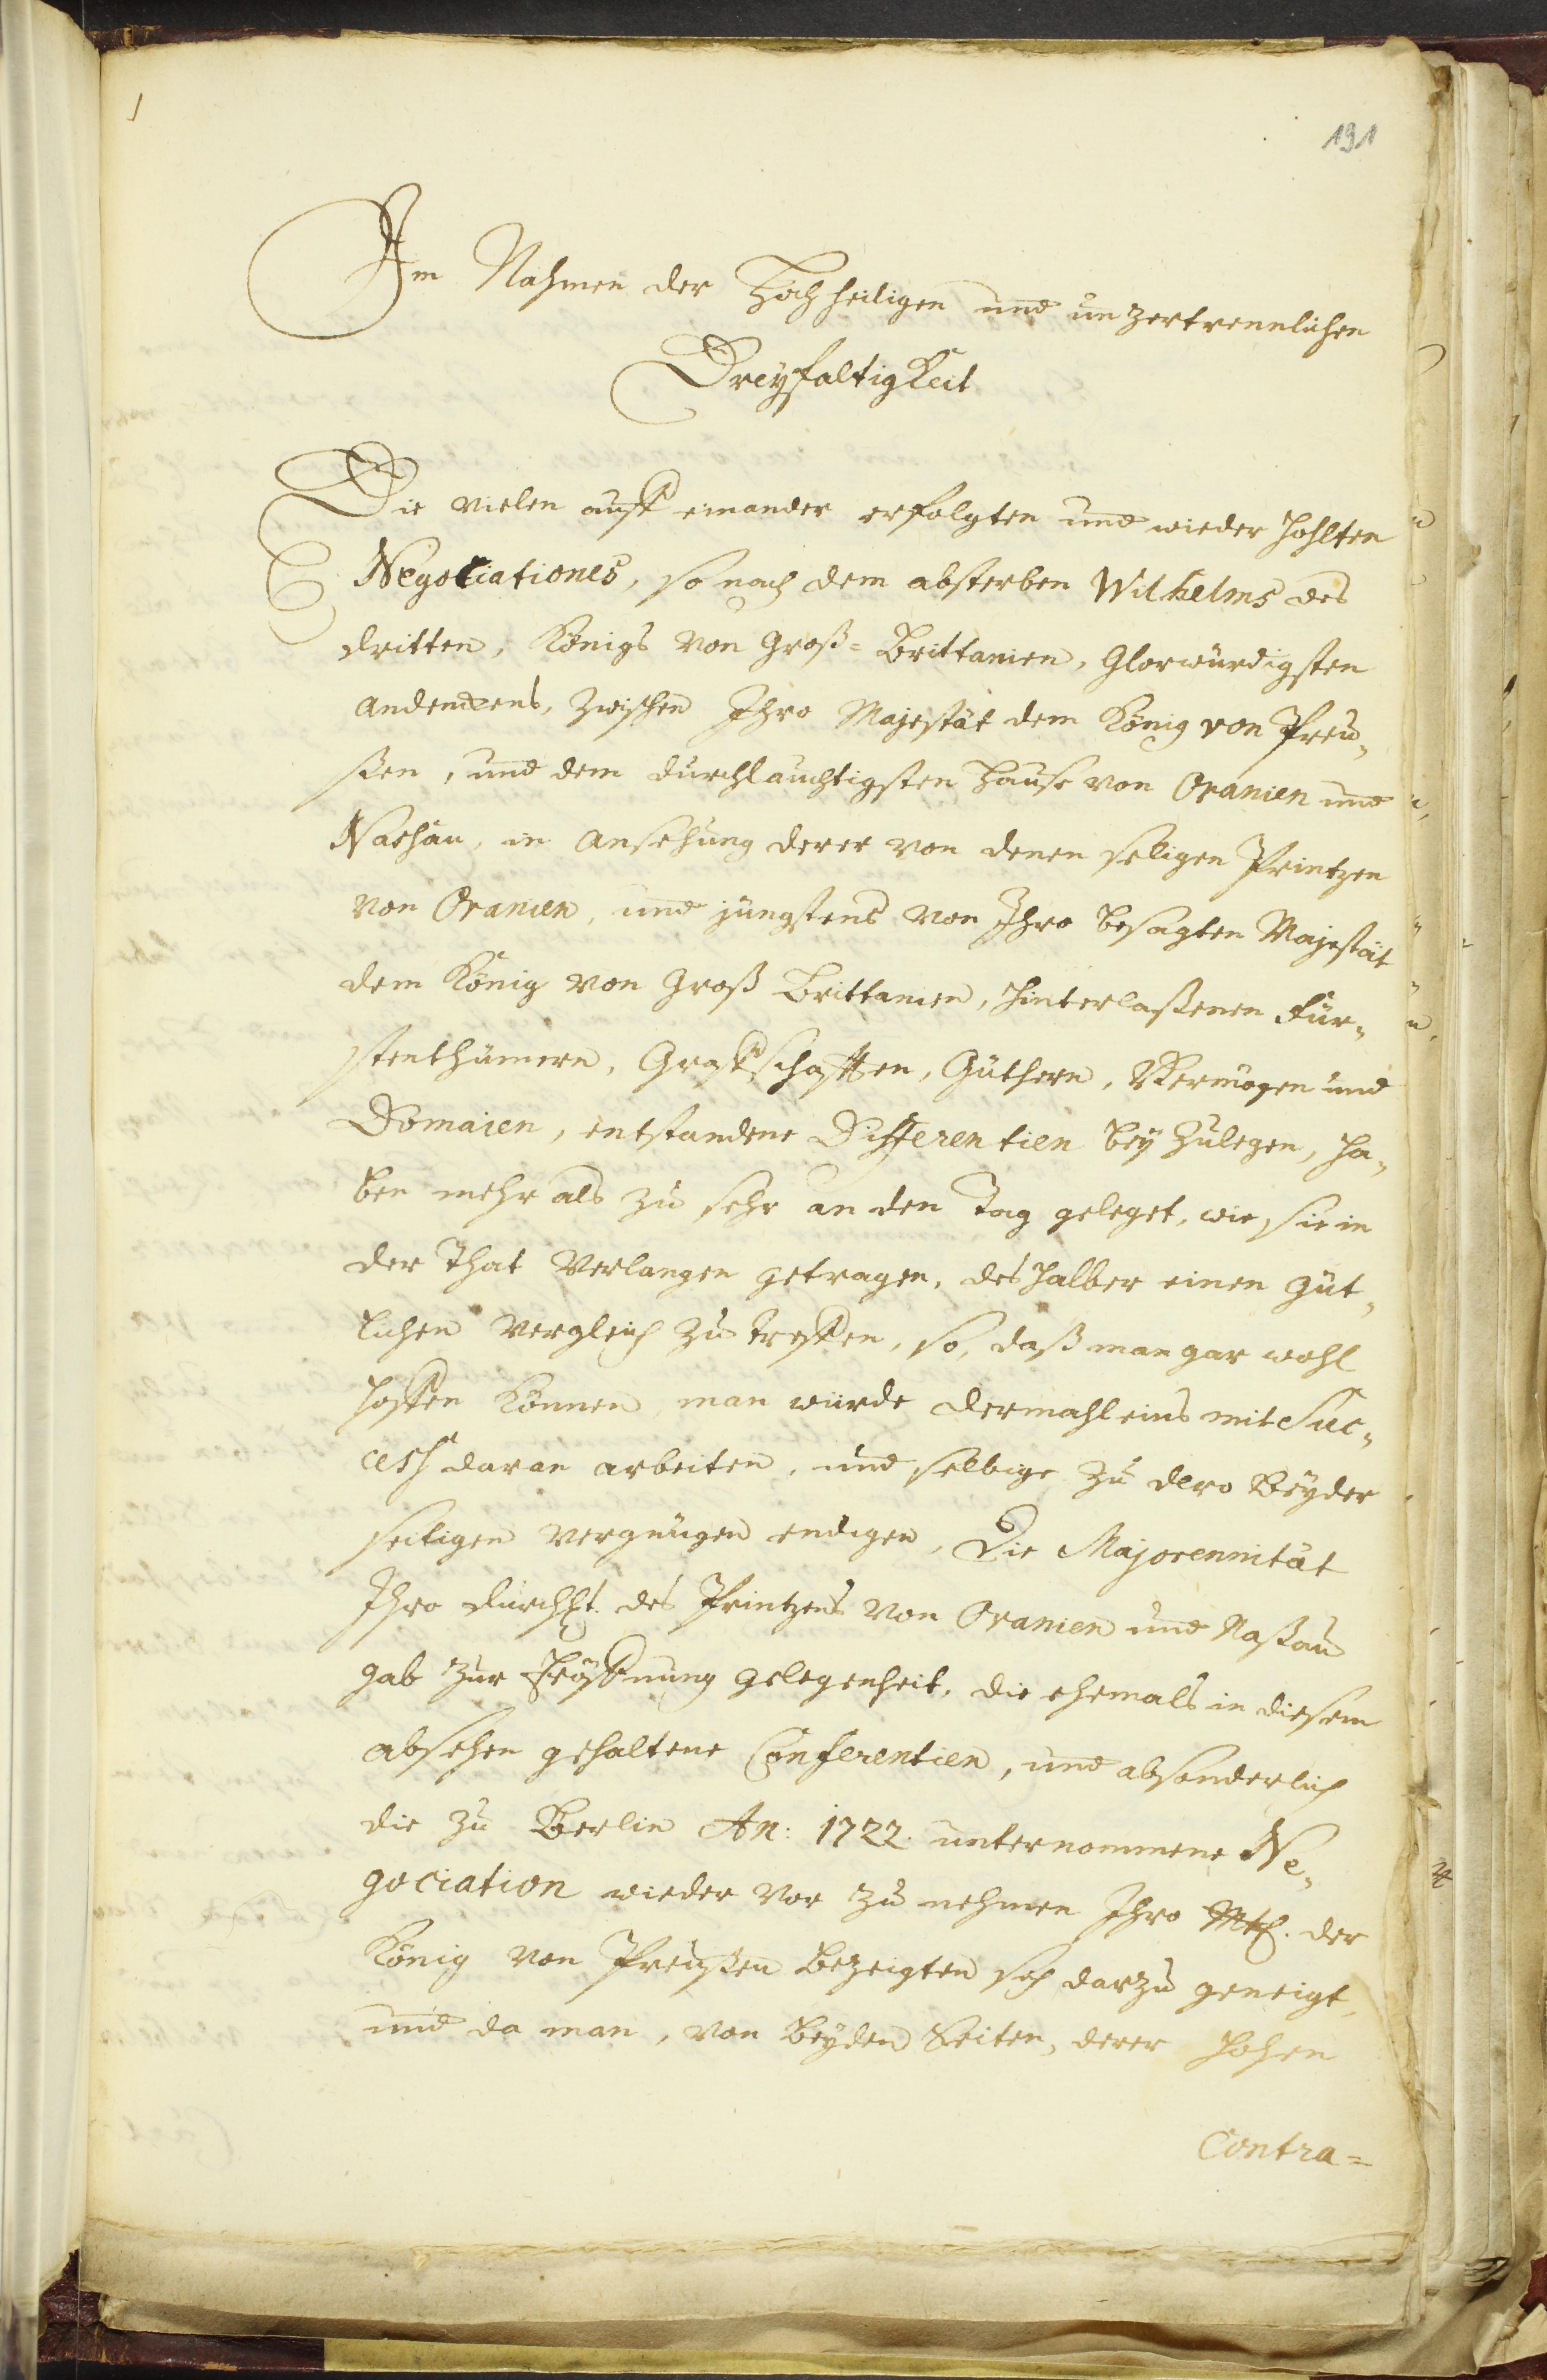 191
Im Nahmen der Hochheiligen und unzertrennlichen
Dreyfaltigkeit
Die vielen auff einander erfolgten und wieder hohlten
Negotiationes, so nach dem absterben Wilhelms des
dritten, Königs von Groß=Brittanien, Glorwürdigsten
andenckens, zwischen Ihro Majestät dem König von Preu¬
ßen, und dem durchlauchtigsten Hause von Oranien und
Nassau, in Ansehung derer von denen seligen Printzen
von Oranien, und jüngstens von Ihro besagten Majestät
dem König von Groß Brittanien, hinterlaßenen Für¬
stenthümern, Graffschafften, Güthern, Vermögen und
Domaien, entstandene Differentien bey zulegen, ha¬
ben mehr als zu sehr an den Tag geleget, wie sie in
der That Verlangen getragen, deshalber einen güt¬
lichen Vergleich zu treffen, so, daß man gar wohl
hoffen können, man würde dermahleins mit Suc¬
cess daran arbeiten, und selbige zu dero Beyder
seitigen Vergnügen endigen, Die Majorennität
Ihro Durchlt. des Printzens von Oranien und Naßau
gab zur Eröffnung gelegenheit, die ehemals in diesem
absehen gehaltene Conferentien, und absonderlich
die zu Berlin An: 1722. unternommene Ne¬
gociation wieder vor zu nehmen Ihro Mtt. der
König von Preußen bezeigten sich darzu geneigt,
und da man, von beyden Seiten, derer hohen
Contra=